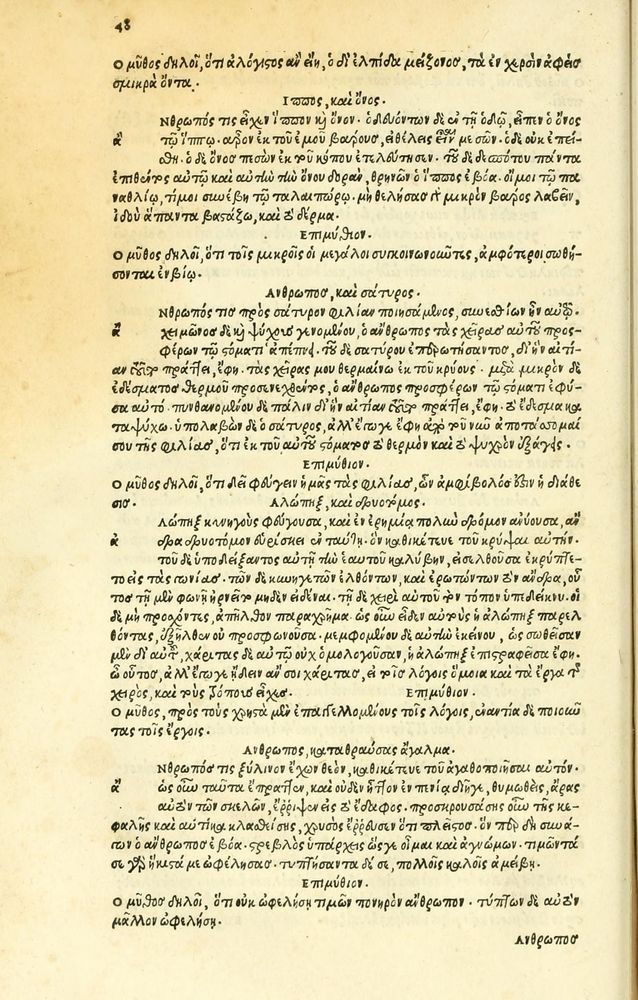 48
Ο μῦθος δηλοῖ, ὅτι ἀλόγιστος ἂν εἴη, ὁ δι' ἐλπίδα μείζονος, τὰ ἐν χερσὶν ἀφεὶς
σμικρὰ ὄντα.
Ιππος, καὶ ὄνος.
Νθρωπός τις εἶχεν ἵππον καὶ ὄνον. ὁδευόντων δὲ ἐν τῇ ὁδῷ, εἶπεν ὁ ὄνος
ἄ τῷ ἵππῳ. ἆρον ἐκ τοῦ ἐμοῦ βάρους, εἰ θέλεις εἶναί με σῶν. ὁ δὲ οὐκ ἐπεί-
σθη. ὁ δὲ ὄνος πεσὼν ἐκ τοῦ κόπου ἐτελεύτησεν. τοῦ δὲ δεσπότου πάντα
ἐπιθέντος αὐτῷ καὶ αὐτὴν τὴν ὄνου δορὰν, θρηνῶν ὁ ἵππος ἐβόα. οἴμοι τῷ πα
ναθλίῳ, τί μοι συνέβη τῷ ταλαιπώρῳ. μὴ θελήσας γὰρ μικρὸν βάρος λαβεῖν,
ἰδοὺ ἅπαντα βαστάζω, καὶ τὸ δέρμα.
Επιμύθιον.
Ο μῦθος δηλοῖ, ὅτι τοῖς μικροῖς οἱ μεγάλοι συγκοινωνοῦντες, ἀμφότεροι σωθή-
σονται ἐν βίῳ.
Ανθρωπος, καὶ σάτυρος.
Νθρωπός τις πρὸς σάτυρον φιλίαν ποιησάμενος, συνεσθίων ἦν αὐτῷ.
ἄ χειμῶνος δὲ καὶ ψύχους γενομένου, ὁ ἄνθρωπος τὰς χεῖρας αὐτοῦ προσ-
φέρων τῷ στόματι ἀπέπνει. τοῦ δὲ σατύρου ἐπερωτήσαντος, δι' ἣν αἰτί-
αν τοῦτο πράττει, ἔφη. τὰς χεῖράς μου θερμαίνω ἐκ τοῦ κρύους. μετὰ μικρὸν δὲ
ἐδέσματος θερμοῦ προσενεχθέντος, ὁ ἄνθρωπος προσφέρων τῷ στόματι ἐφύ-
σα αὐτό. πυνθανομένου δὲ πάλιν δι' ἣν αἰτίαν τοῦτο πράττει, ἔφη. τὸ ἔδεσμα κα
ταψύχω. ὑπολαβὼν δὲ ὁ σάτυρος, ἀλλ' ἔγωγε ἔφη ἀπὸ τοῦ νῦν ἀποτάσσομαί
σου τῆς φιλίας, ὅτι ἐκ τοῦ αὐτοῦ στόματος τὸ θερμὸν καὶ τὸ ψυχρὸν ἐξάγεις.
Επιμύθιον.
Ο μῦθος δηλοῖ, ὅτι δεῖ φεύγειν ἡμᾶς τὰς φιλίας, ὧν ἀμφίβολός ἐστιν ἡ διάθε
σις. Αλώπηξ, καὶ δρυοτόμος.
Λώπηξ κυνηγοὺς φεύγουσα, καὶ ἐν ἐρημίᾳ πολὺν δρόμον ἀνύουσα, ἄν
ἀ δρα δρυοτόμον εὑρίσκει ἐν ταύτῃ. ὃν καθικέτευε τοῦ κρύψαι αὐτήν.
τοῦ δὲ ὑποδείξαντος αὐτῇ τὴν ἑαυτοῦ καλύβην, εἰσελθοῦσα ἐκρύπτε-
το εἰς τὰς γωνίας. τῶν δὲ κυνηγετῶν ἐλθόντων, καὶ ἐρωτώντων τὸν ἄνδρα, οὗ
τος τῇ μὲν φωνῇ ἠρνεῖτο μηδὲν εἰδέναι. τῇ δὲ χειρὶ αὐτοῦ τὸν τόπον ὑπεδείκνυ. οἱ
δὲ μὴ προσχόντες, ἀπῆλθον παραχρῆμα. ὡς οὖν εἶδεν αὐτοὺς ἡ ἀλώπηξ παρελ
θόντας, ἐξῆλθεν οὐ προσφωνοῦσα. μεμφομένου δὲ αὐτὴν ἐκείνου, ὡς σωθεῖσαν
μὲν δι' αὐτοῦ, χάριτας δὲ αὐτῷ οὐχ ὁμολογοῦσαν, ἡ ἀλώπηξ ἐπιστραφεῖσα ἔφη.
ὦ οὗτος, ἀλλ' ἔγωγε ᾔδειν ἄν σοι χάριτας, εἰ τοῖς λόγοις ὅμοια καὶ τὰ ἔργα τῆς
χειρὸς, καὶ τοὺς τρόπους εἶχες. Επιμύθιον.
Ο μῦθος, πρὸς τοὺς χρηστὰ μὲν ἐπαγγελλομένους τοῖς λόγοις, ἐναντία δὲ ποιοῦν
τας τοῖς ἔργοις.
Ανθρωπος, καταθραύσας ἄγαλμα.
Νθρωπός τις ξύλινον ἔχων θεὸν, καθικέτευε τοῦ ἀγαθοποιῆσαι αὐτόν.
ἄ ὡς οὖν ταῦτα ἔπραττεν, καὶ οὐδὲν ἧττον ἐν πενίᾳ διῆγε, θυμωθεὶς, ἄρας
αὐτὸν τῶν σκελῶν, ἔρριψεν εἰς τὸ ἔδαφος. προσκρουσάσης οὖν τῆς κε-
φαλῆς καὶ αὐτίκα κλασθείσης, χρυσὸς ἔρρευσεν ὅτι πλεῖστος. ὃν περ δὴ συνά-
γων ὁ ἄνθρωπος ἐβόα. στρεβλὸς ὑπάρχεις ὥς γε οἶμαι καὶ ἀγνώμων. τιμῶντά
σε γὰρ ἥκιστά με ὠφέλησας. τυπτήσαντα δέ σε, πολλοῖς καλοῖς ἀμείβῃ.
Επιμύθιον.
Ο μῦθος δηλοῖ, ὅτι οὐκ ὠφελήσῃ τιμῶν πονηρὸν ἄνθρωπον. τύπτων δὲ αὐτὸν
μᾶλλον ὠφελήσῃ.
Ανθρωπος